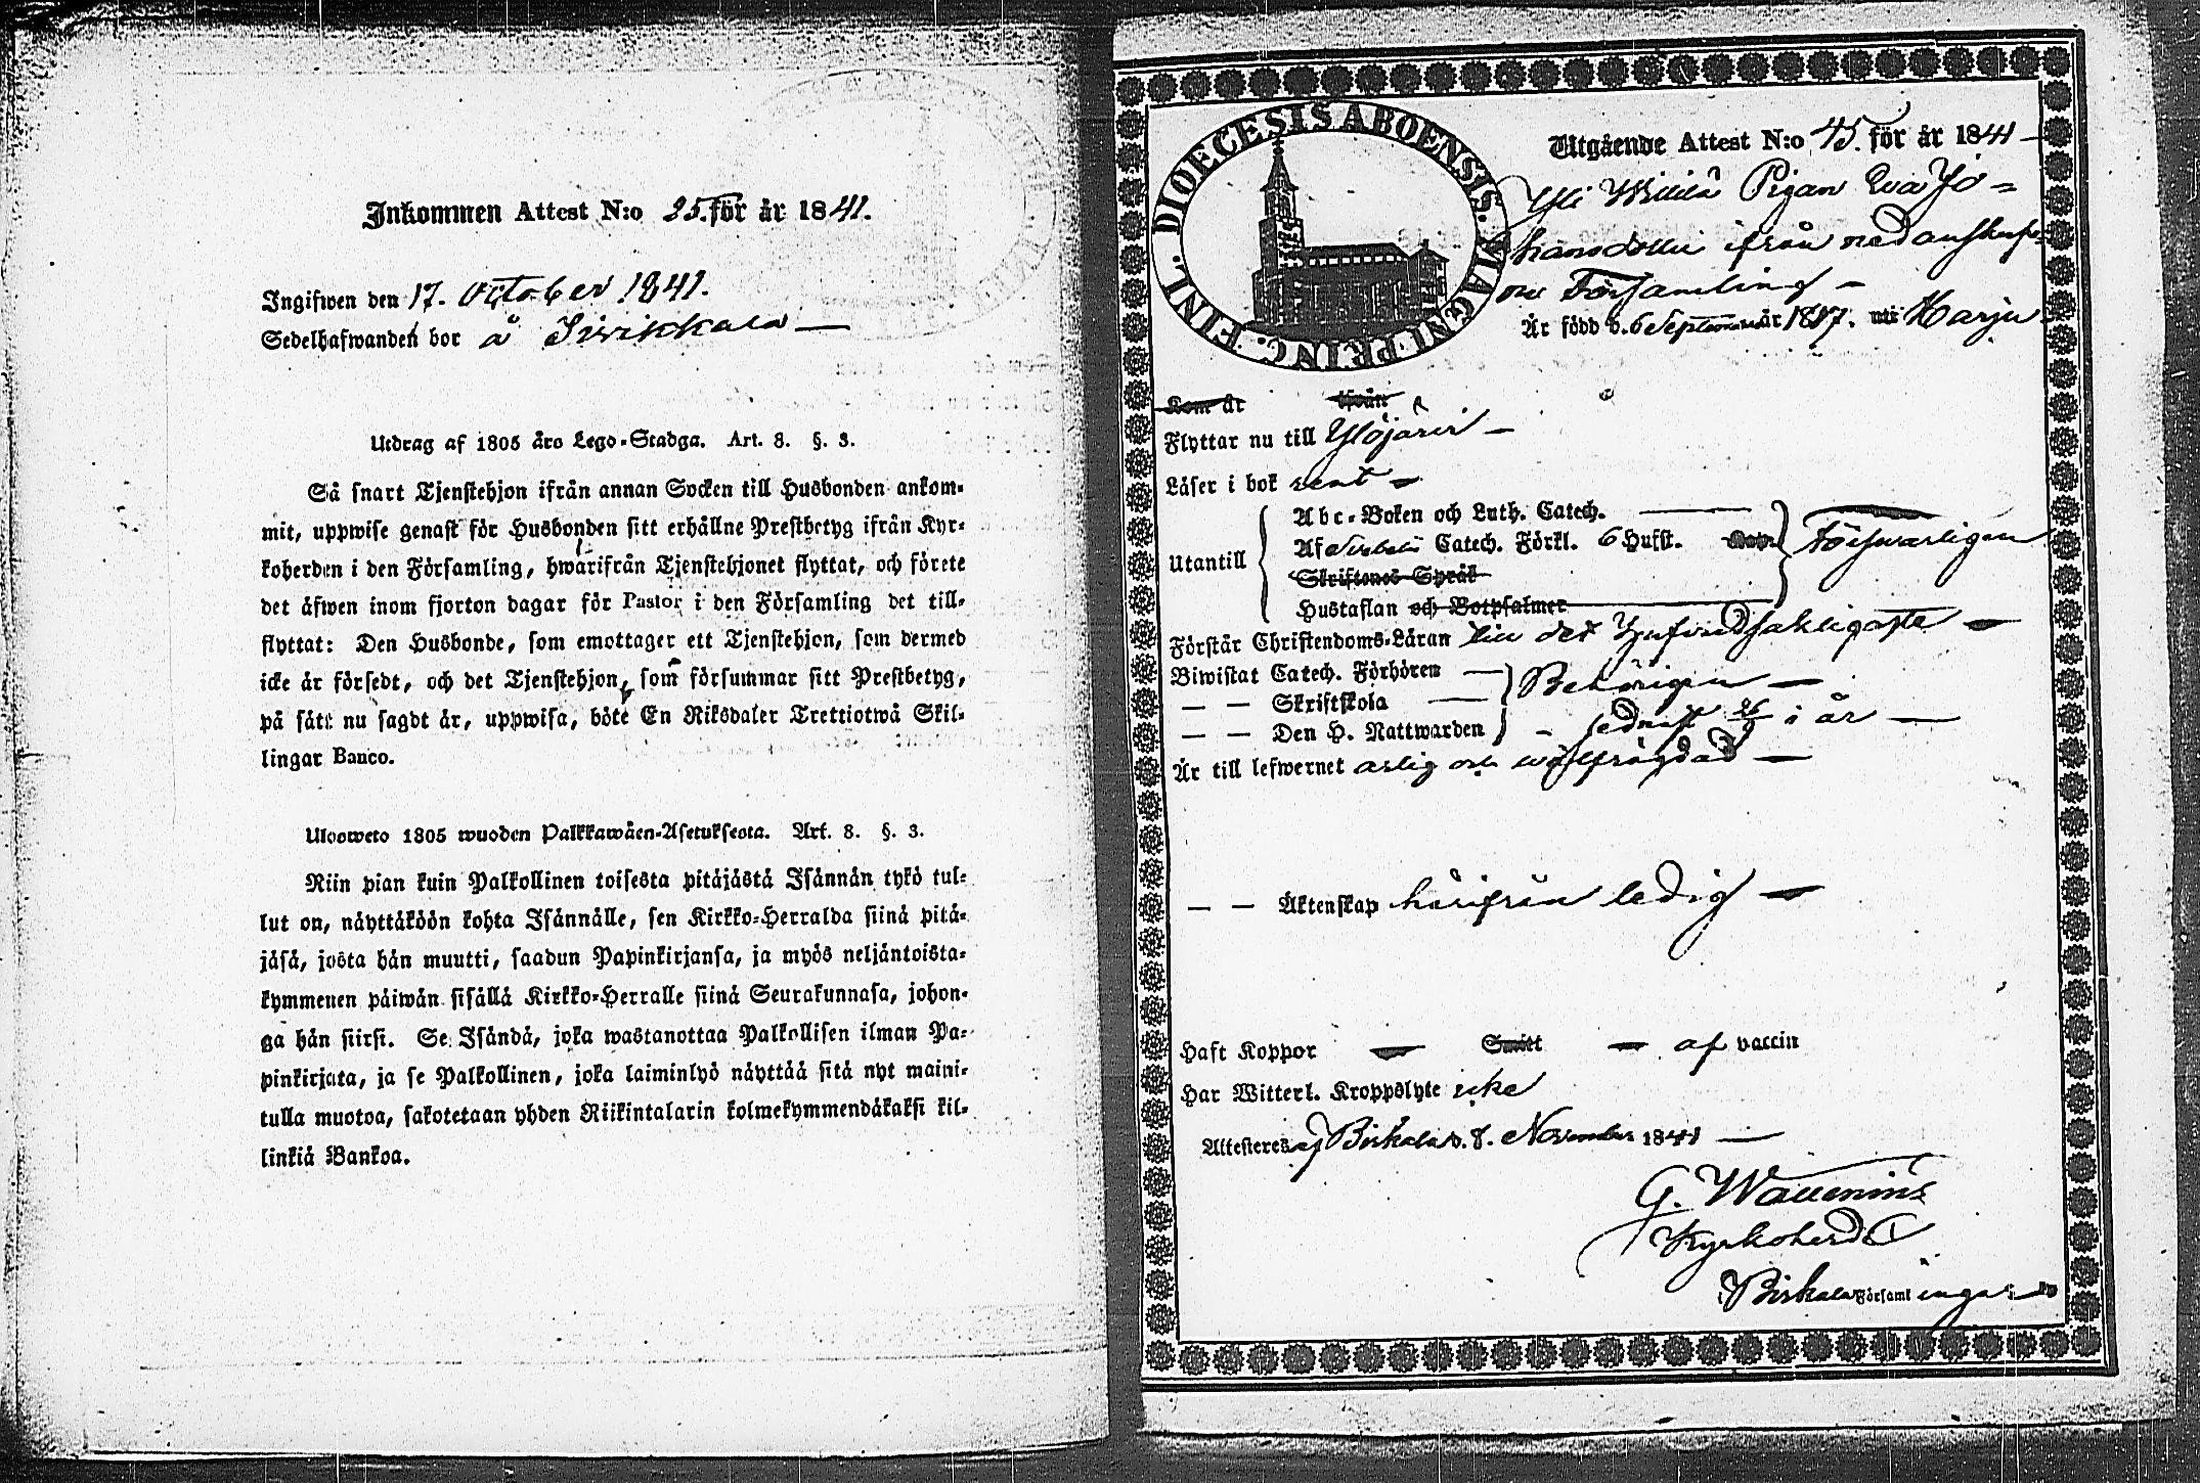 Inkommen Attest N:o 25. för år 1841.
Ingifwen den 17. October 1841.
Sedelhafwanden bor å Siwikkala —
Utdrag af 1805 års Lego-Stadga. Art. 8. §. 3.
Så snart Tjenstehjon ifrån annan Socken till Husbonden ankom-
mit, uppwise genast för Husbonden sitt erhållne Prestbetyg ifrån Kyr-
koherden i den Församling, hwarifrån Tjenstehjonet flyttat, och förete
det äfwen inom fjorton dagar för Pastor i den Församling det till-
flyttat: Den Husbonde, som emottager ett Tjenstehjon, som dermed
icke är försedt, och det Tjenstehjon, som försummar sitt Prestbetyg,
på sätt nu sagdt är, uppwisa, böte En Riksdaler Trettiotwå Skil-
lingar Banco.
Ulosweto 1805 wuoden Palkkawäen-Asetuksesta. Art. 8. §. 3.
Niin pian kuin Palkollinen toisesta pitäjästä Isännän tykö tul-
lut on, näyttäköön kohta Isännälle, sen Kirkko-Herralda siinä pitä-
jäsä, josta hän muutti, saadun Papinkirjansa, ja myös neljäntoista-
kymmenen päiwän sisällä Kirkko-Herralle siinä Seurakunnasa, johon-
ga hän siirsi. Se Isändä, joka wastanottaa Palkollisen ilman Pa-
pinkirjata, ja se Palkollinen, joka laiminlyö näyttää sitä nyt maini-
tulla muotoa, sakotetaan yhden Riikintalarin kolmekymmendäkaksi kil-
linkiä Bankoa.
DIOECESIS ABOENSIS. MAGNI PRINC. FINL.
Utgående Attest N:o 45. för år 1841 —
Yli Willilä Pigan Eva Jo=
hansdotter ifrån nedanskrif=
ne Församling —
Är född d. 6 September år 1817. uti Harju
Kom år ifrån
Flyttar nu till Ylöjärvi —
Läser i bok rent —
Utantill
Abc-Boken och Luth. Catech. —
Af Svebelii Catech. Förkl. 6 Hufst. Försvarligen
Skriftenes Språk
Hustaflan och Botpsalmer
Förstår Christendoms-Läran till det
Biwistat Catech. Förhören — Behörigen —
— — Skriftskola —
— — Den H. Nattwarden - sednast 26/9 i år —
Är till lefwernet ärlig och wälfrägdad —
— — Äktenskap härifrån ledig —
Haft Koppor — Smitt — af vaccin
Har Witterl. Kroppslyte icke
Attesteres af Birkala d. 8. November 1841 —
G. Wallenius
Kyrkoherde i
Birkala Församlingar